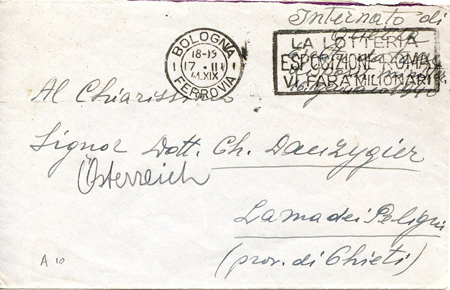 Internato di
Guerra
BOLOGNA
18-15
17 · II
41.XIX
FERROVIA
LA LOTTERIA
ESPOSIZIONE ROMA
VI FARÀ MILIONARI
Al Chiarissimo
Signor Dott. Ch. Danzygier
Österreich
Lama dei Peligni
(prov. di Chieti)
A 10